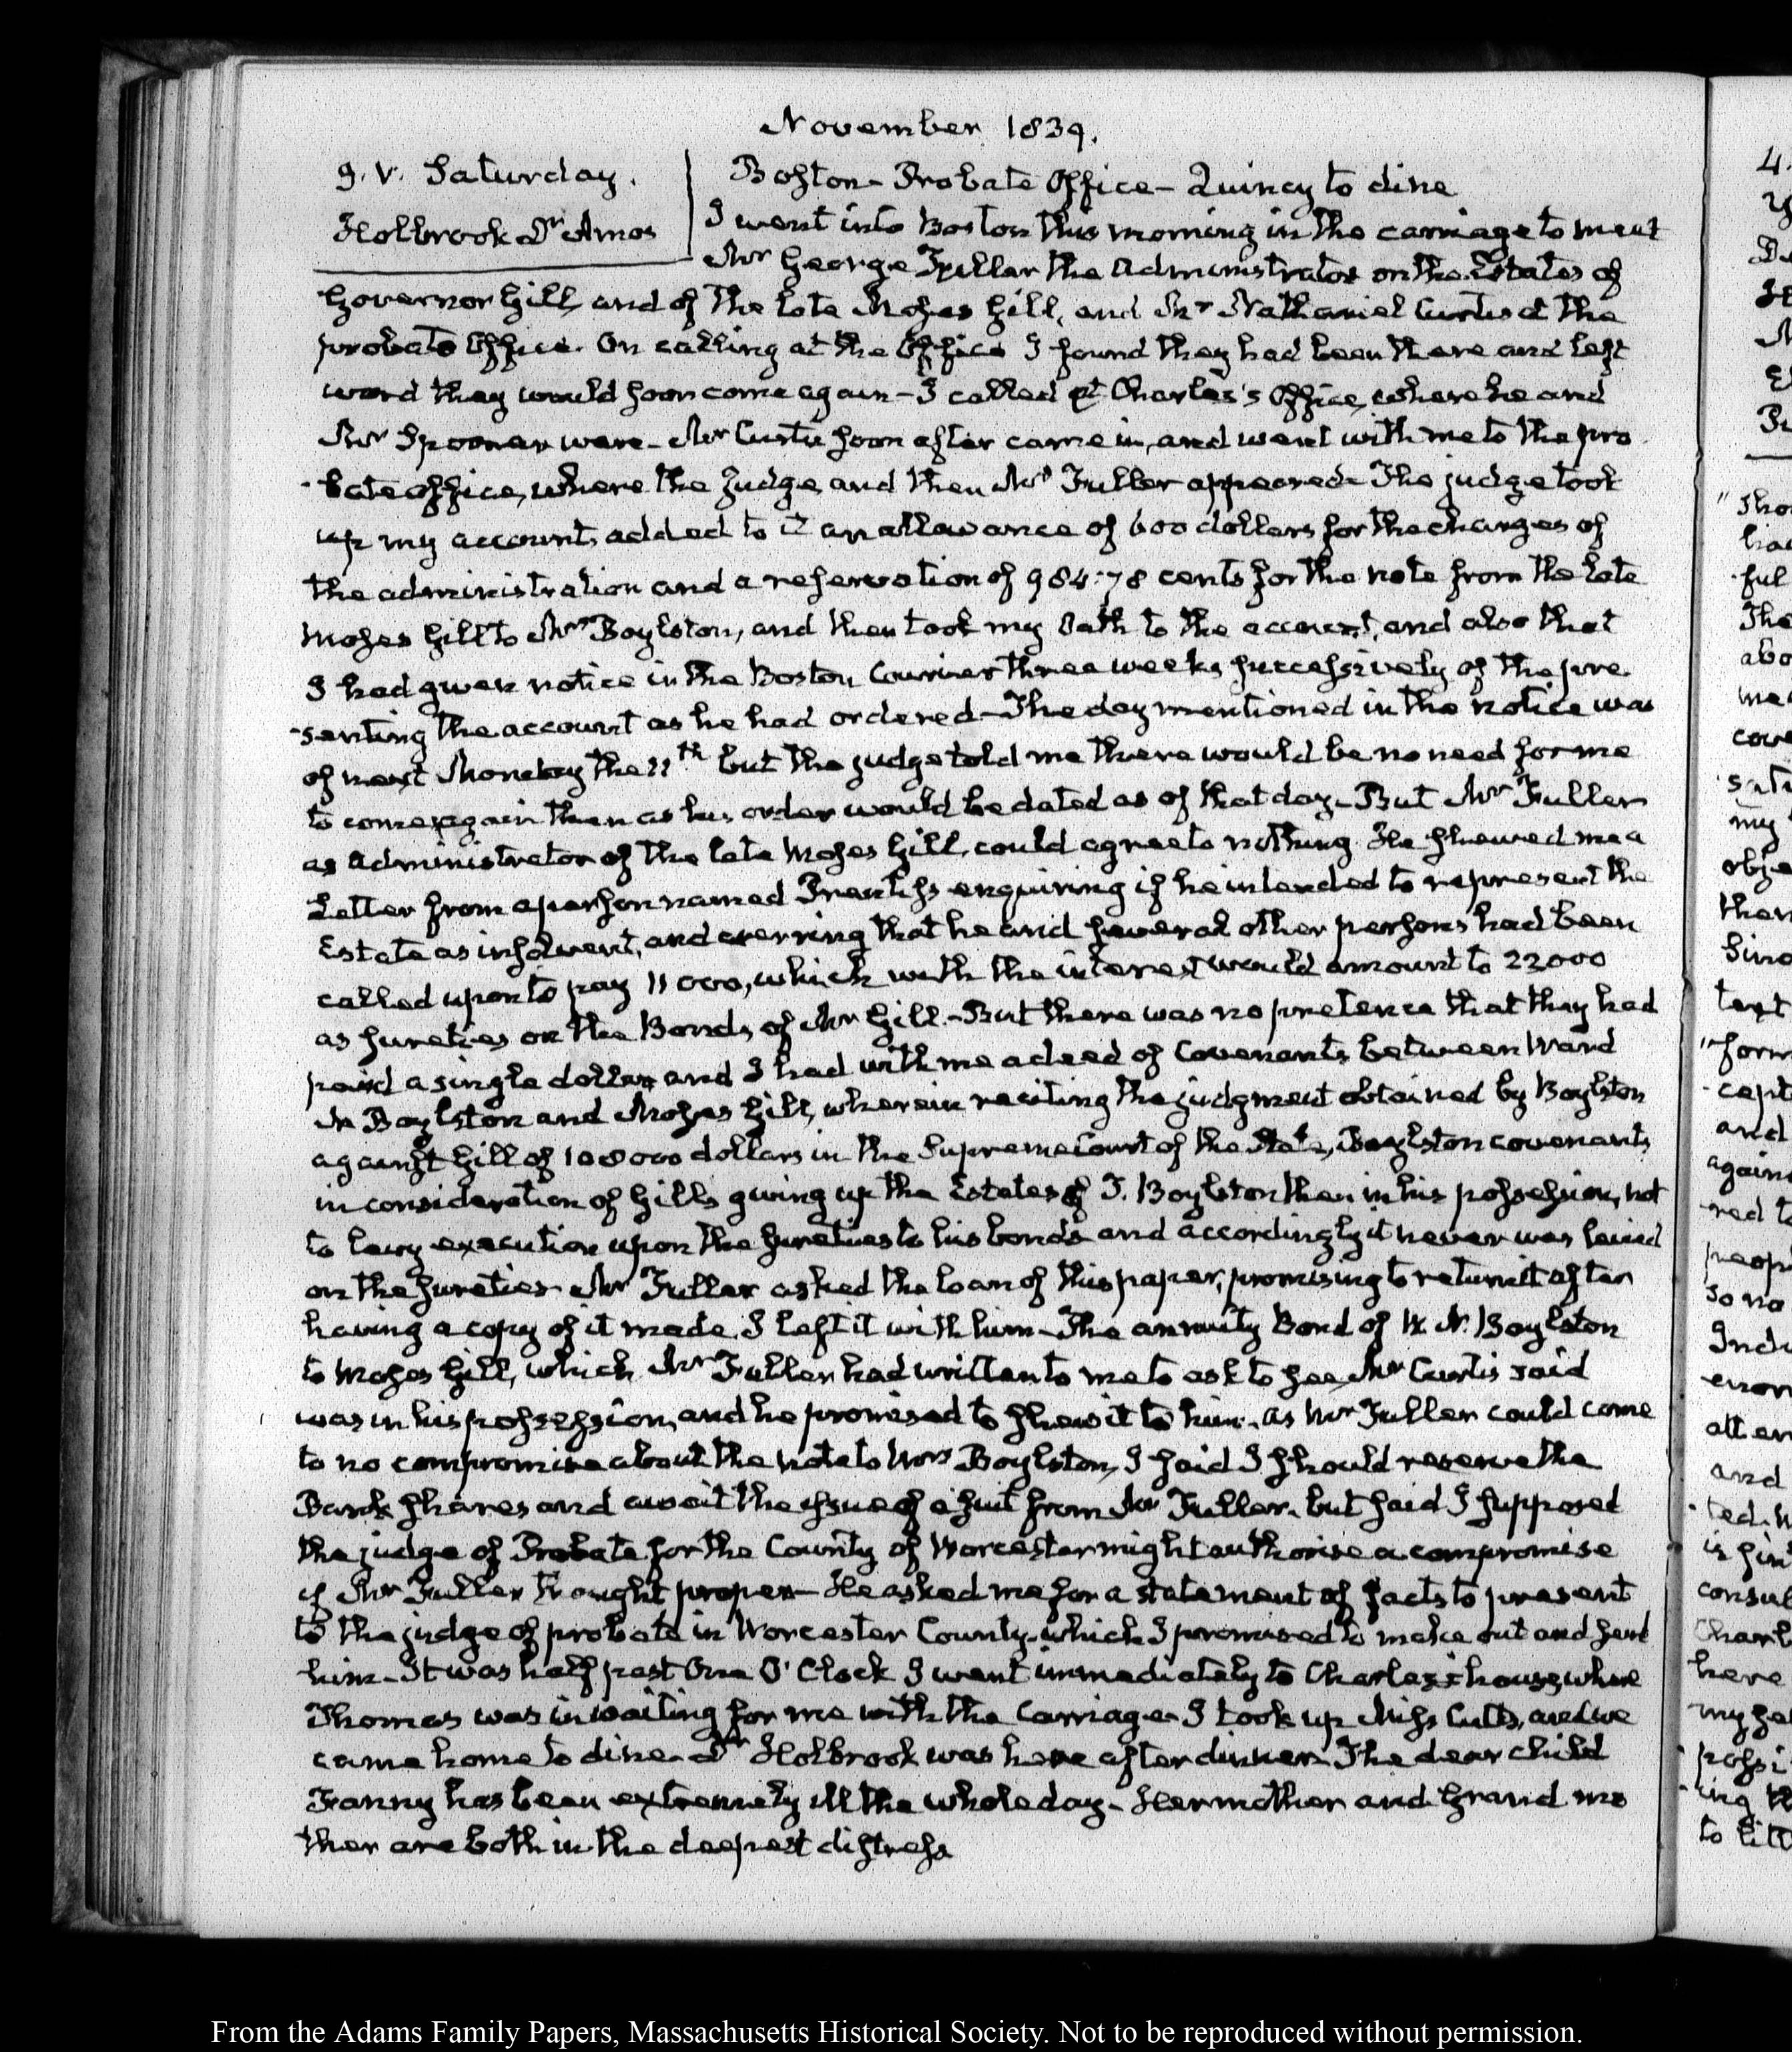 November 1839.
9. V. Saturday.
Holbrook Dr Amos
Boston – Probate Office – Quincy to dine
I went into Boston this morning in the carriage to meet
Mr George Fuller the Administrator on the Estates of
Governor Gill, and of the late Moses Gill, and Mr Nathaniel Curtis at the
probate Office. On calling at the Office I found they had been there and left
word they would soon come again – I called at Charles's Office, where he and
Mr Spooner were – Mr Curtis soon after came in, and went with me to the pro
-bate office, where the Judge, and then Mr Fuller appeared – The judge took
up my account, added to it an allowance of 600 dollars for the charges of
the administration and a reservation of 984:78 cents for the note from the late
Moses Gill to Mrs Boylston, and then took my Oath to the account, and also that
I had given notice in the Boston Courier three weeks successively of the pre
-senting the account as he had ordered – The day mentioned in the notice was
of next Monday the 11th but the judge told me there would be no need for me
to come again then as his order would be dated as of that day – But Mr Fuller
as administrator of the late Moses Gill, could agree to nothing. He shewed me a
Letter from a person named Prentiss enquiring if he intended to represent the
Estate as insolvent, and averring that he and several other persons had been
called upon to pay 11 000, which with the interest would amount to 22000
as sureties on the Bonds of Mr Gill. – But there was no pretence that they had
paid a single dollar and I had with me a deed of Covenants between Ward
N Boylston and Moses Gill, wherein reciting the judgment obtained by Boylston
against Gill of 108000 dollars in the Supreme Court of the State, Boylston covenants
in consideration of Gill's giving up the Estates of T. Boylston then in his possession, not
to levy execution upon the sureties to his bonds and accordingly it never was levied
on the sureties – Mr Fuller asked the loan of this paper, promising to return it after
having a copy of it made. I left it with him – The annuity Bond of W. N. Boylston
to Moses Gill, which Mr Fuller had written to me to ask to see, Mr Curtis said
was in his possession, and he promised to shew it to him. As Mr Fuller could come
to no compromise about the note to Mrs Boylston, I said I should reserve the
Bank shares and await the issue of a suit from Mr Fuller, but said I supposed
the judge of Probate for the County of Worcester might authorise a compromise
if Mr Fuller thought proper – He asked me for a statement of facts to present
to the judge of probate in Worcester County which I promised to make out and send
him – It was half past One O'Clock I went immediately to Charles's house where
Thomas was in waiting for me with the Carriage – I took up Miss Cutts, and we
came home to dine – Dr Holbrook was here after dinner – The dear child
Fanny has been extremely ill the whole day – Her mother and Grand mo
ther are both in the deepest distress
From the Adams Family Papers, Massachusetts Historical Society. Not to be reproduced without permission.